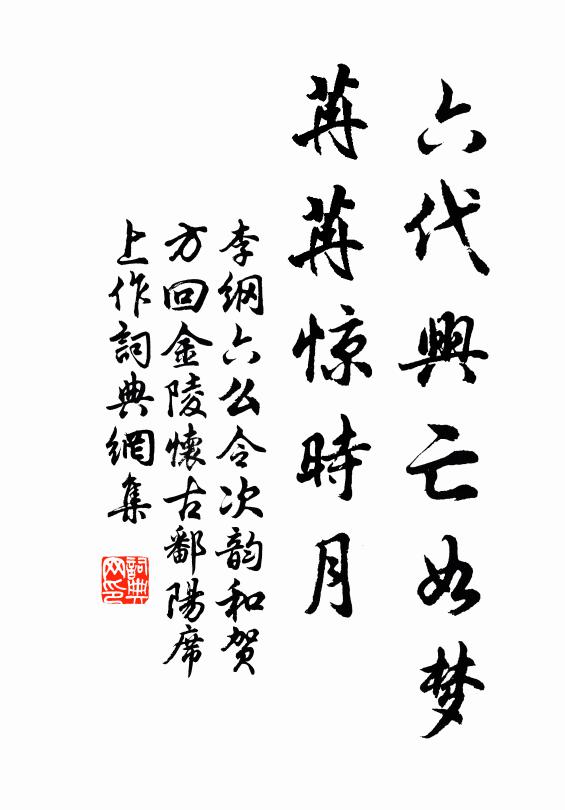 六代興亡如梦
苒苒惊時月
李纲六么令次韵和贺
方回金陵懷古鄱陽席
上作詞典網集
詞典
网印